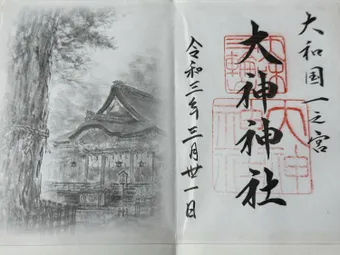 大和国一之宮
大神神社
令和三年三月廿一日